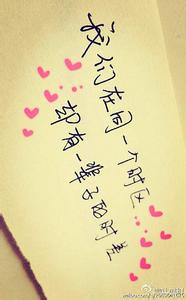 我们在同一个时区
却有一辈子的时差